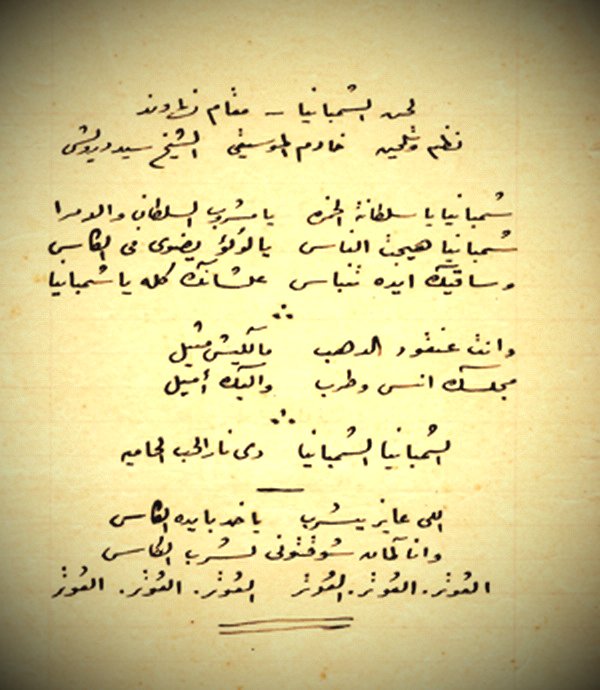 لحن الشمبانيا - مقام نهاوند
نظم وتلحين خادم الموسيقى الشيخ سيد درويش
شمبانيا يا سلطانة الخمره يا مشروب السلطان والامرا
شمبانيا هيجت الناس يا لؤلؤ يضوى فى الكاس
وساقيك ايده تنباس علشانك كله يا شمبانيا
وانت عنقود الدهب مالكيش مثيل
مجلسك انس وطرب واليك أميل
الشمبانيا الشمبانيا دى نار الحب الحاميه
اللى عايز يشرب ياخد بايده الكاس
وانا كمان شوقتونى لشرب الكاس
الغوث. الغوث. الغوث الغوث. الغوث. الغوث